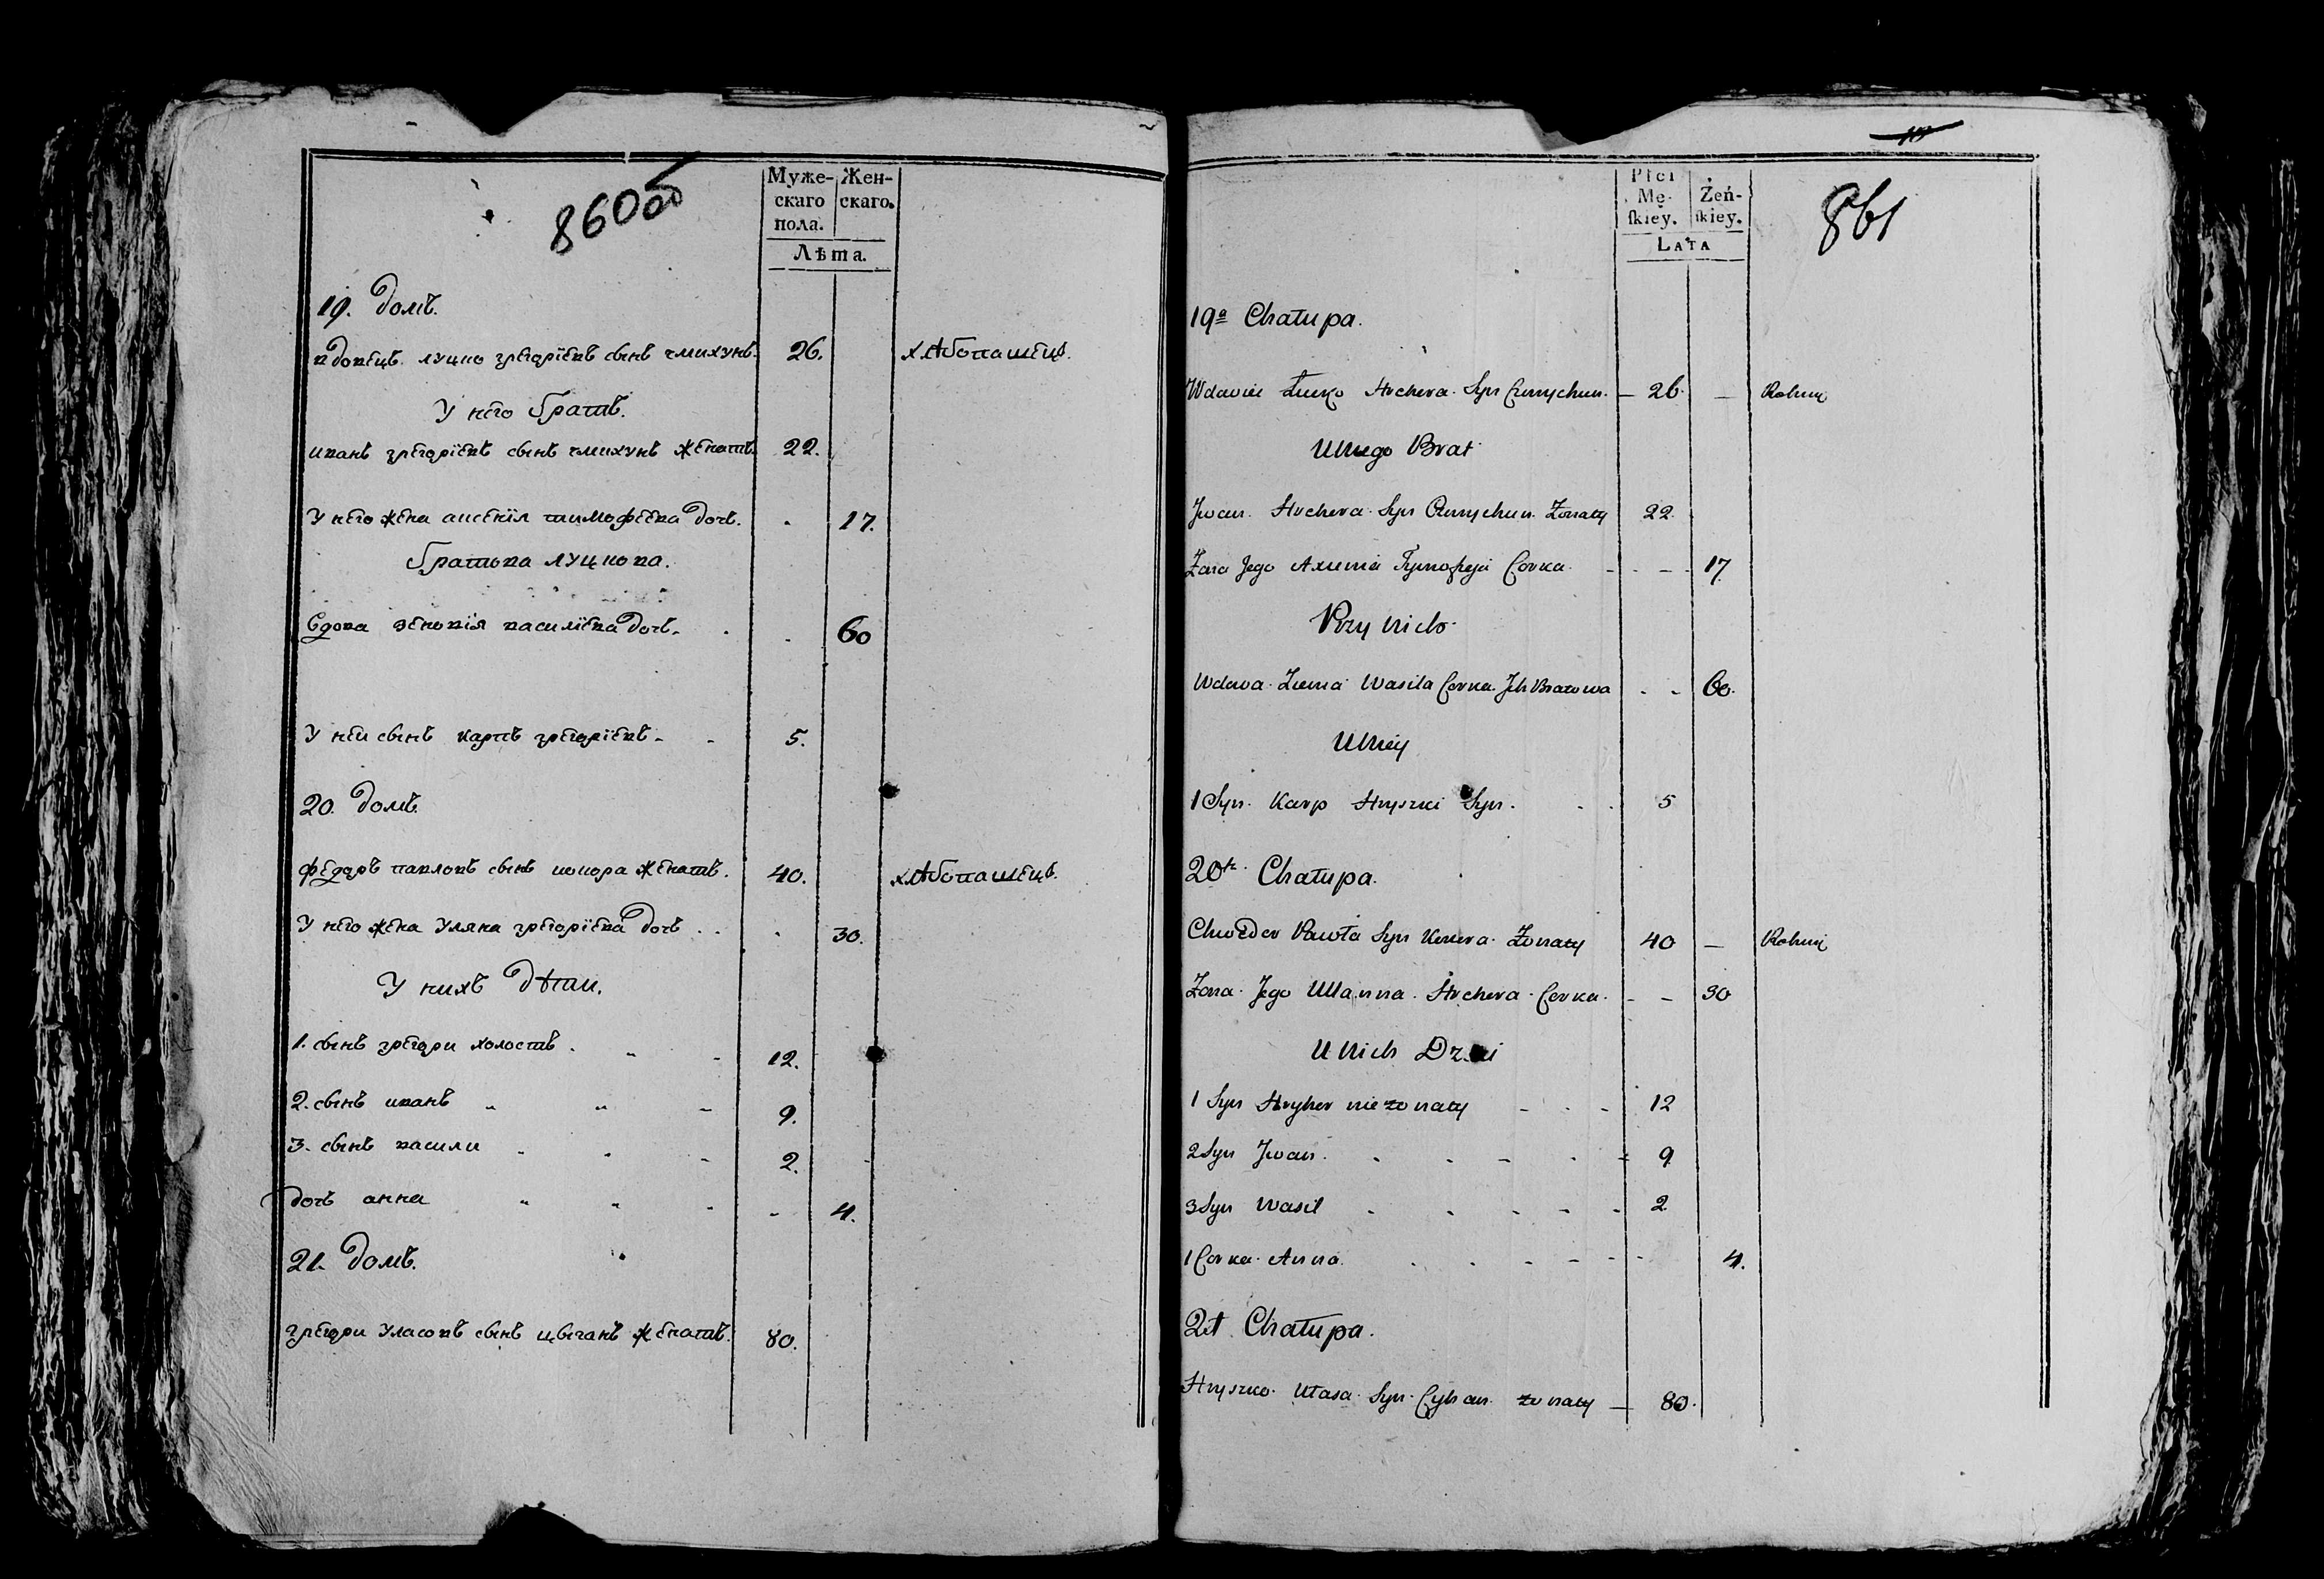 860об
Муже-
скаго
пола.
Жен-
скаго.
Лѣта.
19. домъ.
вдовецъ луцко грегорïевъ сынъ чмихунъ. 26. хлѣбопашецъ.
У него братъ.
иванъ грегорïевъ сынъ чмихунъ женатъ 22.
У него жена аксенïя тимофеева дочь. 17.
братова луцкова.
вдова зеновïя василïева дочь. 60
У неи сынъ карпъ грегорïевъ 5.
20. домъ.
федоръ павловъ сынъ кокора женатъ. 40. хлѣбопашецъ.
У него жена Уляна грегорïева дочь 30.
У нихъ дѣти.
1. сынъ грегори холостъ. 12.
2. сынъ иванъ 9.
3. сынъ васили 2.
дочь анна 4.
21. домъ.
грегори Уласовъ сынъ цыганъ женатъ. 80.
861
Płci
Mę-
ſkiey.
Żeń-
ſkiey.
LATA
19a Chałupa.
Wdowiec Łucko Hrehera Syn Czmychun. 26. Rolnik
U Niego Brat
Jwan Hrehera Syn Czmychun Żonaty 22
Żona Jego Axenia Tymofieja Corka 17
Przy Nich
Wdowa Zienia Wasila Corka Jch Bratowa 60.
U Niey
1 Syn Karp Hryszki Syn. 5
20ta Chałupa.
Chwedor Pawła Syn Kokora Żonaty 40 Rolnik
Żona Jego Ullanna Hrehera Corka 30
U Nich Dzieci
1 Syn Hryher nieżonaty 12
2 Syn Jwan 9
3 Syn Wasil 2
1 Corka Anna 4.
21 Chałupa.
Hryszko Ułasa Syn Cyhan żonaty 80.